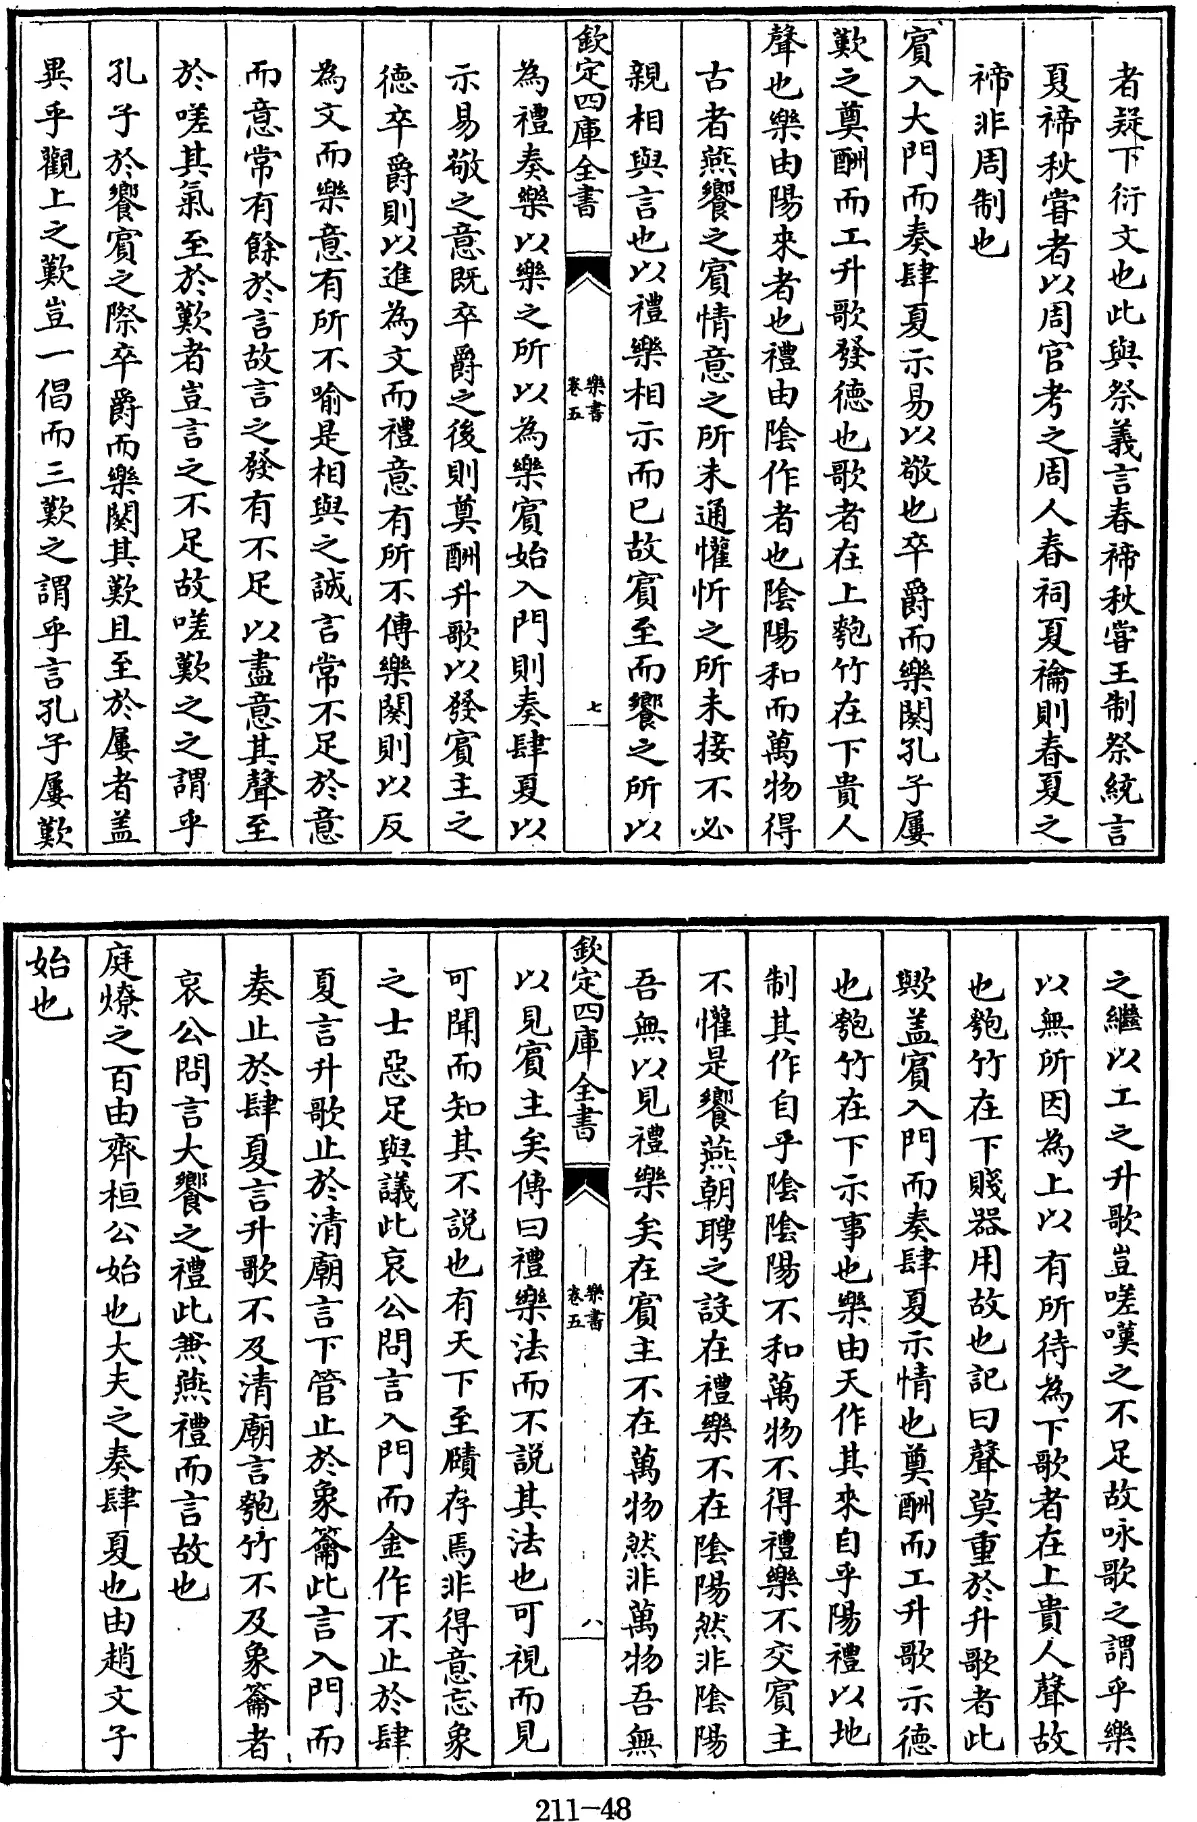 者疑下衍文也此與祭義言春禘秋嘗王制祭統言
夏禘秋嘗者以周官考之周人春祠夏禴則春夏之
禘非周制也
賓入大門而奏肆夏示易以敬也卒爵而樂闋孔子屢
歎之奠酬而工升歌發德也歌者在上匏竹在下貴人
聲也樂由陽來者也禮由陰作者也陰陽和而萬物得
古者燕饗之賓情意之所未通懽忻之所未接不必
親相與言也以禮樂相示而已故賓至而饗之所以
欽定四庫全書
樂書
卷五
七
為禮奏樂以樂之所以為樂賓始入門則奏肆夏以
示易敬之意既卒爵之後則奠酬升歌以發賓主之
德卒爵則以進為文而禮意有所不傳樂闋則以反
為文而樂意有所不喻是相與之誠言常不足於意
而意常有餘於言故言之發有不足以盡意其聲至
於嗟其氣至於歎者豈言之不足故嗟歎之之謂乎
孔子於饗賓之際卒爵而樂闋其歎且至於屢者盖
異乎觀上之歎豈一倡而三歎之謂乎言孔子屢歎
之繼以工之升歌豈嗟嘆之不足故咏歌之謂乎樂
以無所因為上以有所待為下歌者在上貴人聲故
也匏竹在下賤器用故也記曰聲莫重於升歌者此
歟盖賓入門而奏肆夏示情也奠酬而工升歌示德
也匏竹在下示事也樂由天作其來自乎陽禮以地
制其作自乎陰陰陽不和萬物不得禮樂不交賓主
不懽是饗燕朝聘之設在禮樂不在陰陽然非陰陽
吾無以見禮樂矣在賓主不在萬物然非萬物吾無
欽定四庫全書
樂書
卷五
八
以見賓主矣傳曰禮樂法而不說其法也可視而見
可聞而知其不說也有天下至賾存焉非得意忘象
之士惡足與議此哀公問言入門而金作不止於肆
夏言升歌止於清廟言下管止於象籥此言入門而
奏止於肆夏言升歌不及清廟言匏竹不及象籥者
哀公問言大饗之禮此兼燕禮而言故也
庭燎之百由齊桓公始也大夫之奏肆夏也由趙文子
始也
211-48